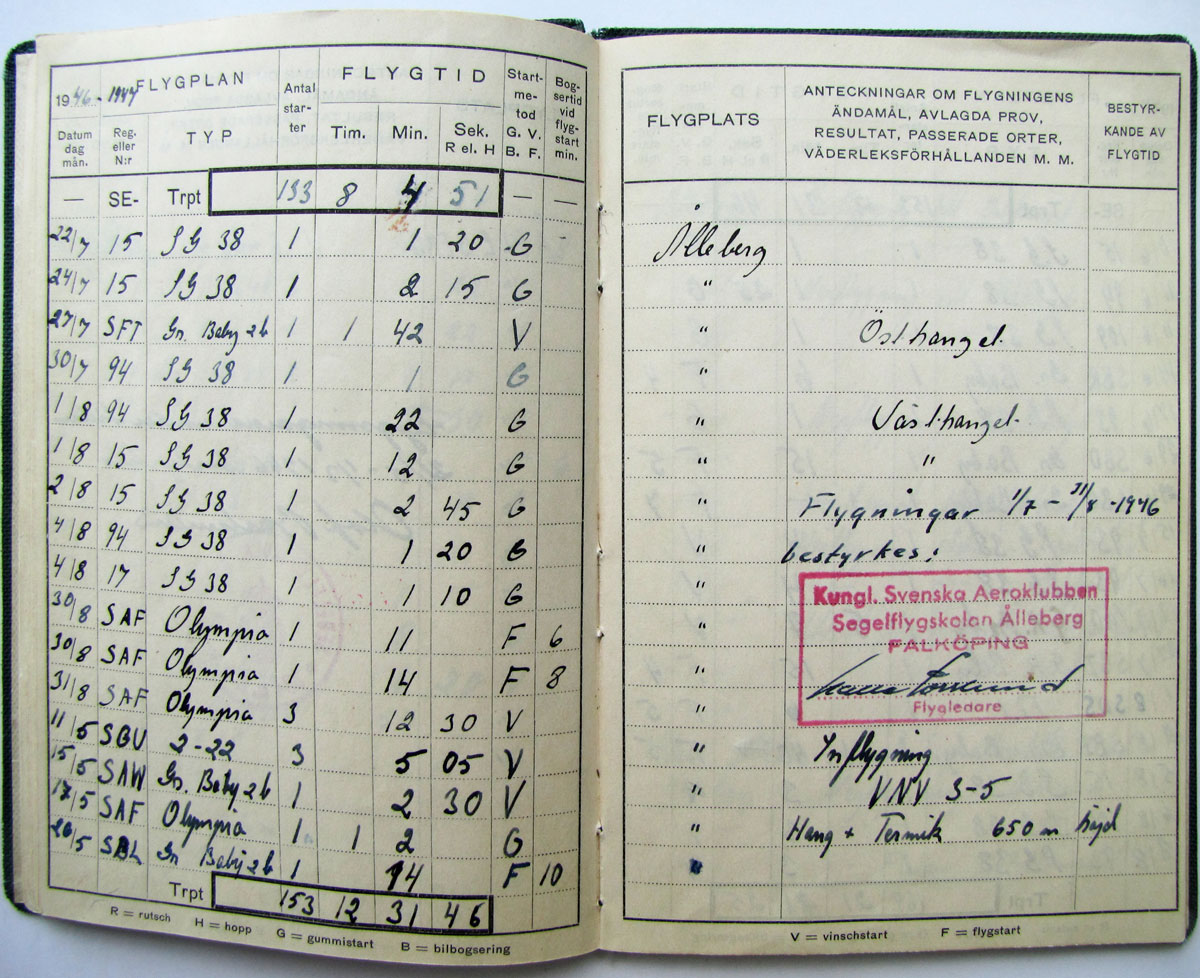 1946 - 1947 FLYGPLAN Antal starter FLYGTID Startmetod G. V. B. F. Bogsertid vid flygstart min.
Datum dag mån. Reg. eller N:r TYP Tim. Min. Sek. R el. H
— SE- Trpt 133 8 4 51 — —
22/7 15 SG 38 1 1 20 G
24/7 15 SG 38 1 2 15 G
27/7 SFT Gr. Baby 2b 1 1 42 V
30/7 94 SG 38 1 1 G
1/8 94 SG 38 1 22 G
1/8 15 SG 38 1 12 G
2/8 15 SG 38 1 2 45 G
4/8 94 SG 38 1 1 20 G
4/8 17 SG 38 1 1 10 G
30/8 SAF Olympia 1 11 F 6
30/8 SAF Olympia 1 14 F 8
31/8 SAF Olympia 3 12 30 V
11/5 SGU 2-22 3 5 05 V
15/5 SAW Gr. Baby 2b 1 2 30 V
17/5 SAF Olympia 1 1 2 G
26/5 Gr Baby 2b 1 14 F 10
Trpt 153 12 31 46
R = rutsch H = hopp G = gummistart B = bilbogsering
FLYGPLATS ANTECKNINGAR OM FLYGNINGENS BESTYR-
ÄNDAMÅL, AVLAGDA PROV, KANDE AV
RESULTAT, PASSERADE ORTER, FLYGTID
VÄDERLEKSFÖRHÅLLANDEN M. M.
Ålleberg
"
" Östhanget.
"
" Västhanget.
" "
" Flygningar 1/7 – 31/8 -1946
" bestyrkes:
" Kungl. Svenska Aeroklubben
" Segelflygskolan Ålleberg
FALKÖPING
"
" Flygledare
" Inflygning
" VNV 3-5
" Hang + Termik 650 m höjd
"
V = vinschstart F = flygstart